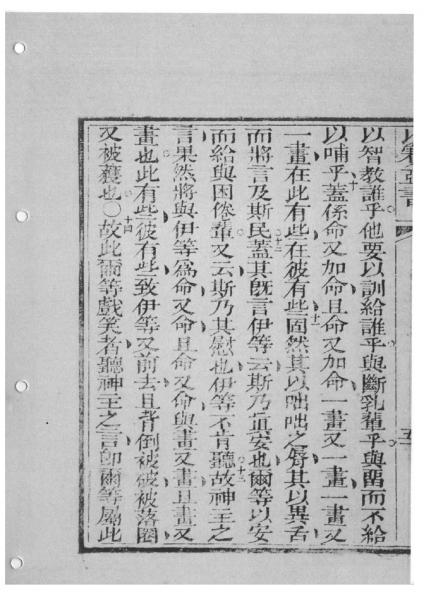 以賽亞書
以智教誰乎他要以訓給誰乎與斷乳輩乎與畱而不給
以哺乎蓋係命又加命且命又加命一畫又一畫一畫又
一畫在此有些在彼有些固然其以咄咄之唇其以異舌
而將言及斯民蓋其旣言伊等云斯乃宜安也爾等以安
而給與困倦輩又云斯乃其慰也伊等不肯聽故神主之
言果然將與伊等爲命又命且命又命與畫又畫且畫又
畫也此有些彼有些致伊等又前去且背倒被破被落圈
又被蒦也〇故此爾等戲笑者聽神主之言卽爾等屬此
十
十一
十二
十三
十四